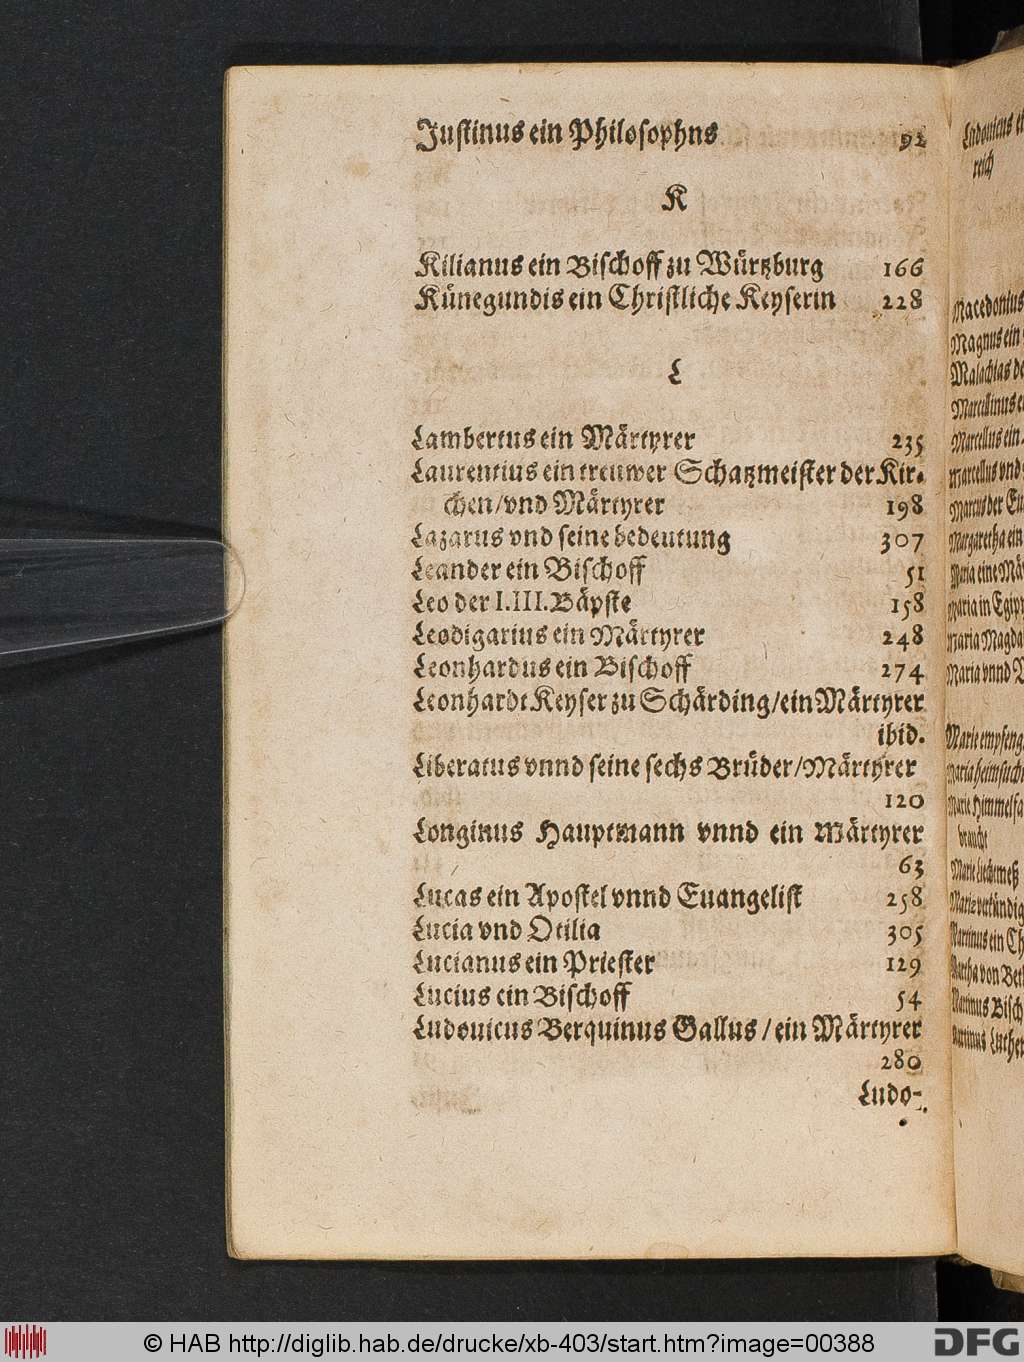 Justinus ein Philosophns 92
K
Kilianus ein Bischoff zu Würtzburg 166
Künegundis ein Christliche Keyserin 228
L
Lambertus ein Märtyrer 235
Laurentius ein treuwer Schatzmeister der Kir-
chen/vnd Märtyrer 198
Lazarus vnd seine bedeutung 307
Leander ein Bischoff 51
Leo der I.III.Bäpste 158
Leodigarius ein Märtyrer 248
Leonhardus ein Bischoff 274
Leonhardt Keyser zu Schärding/ein Märtyrer
ibid.
Liberatus vnnd seine sechs Brüder/Märtyrer
120
Longinus Hauptmann vnnd ein Märtyrer
63
Lucas ein Apostel vnnd Euangelist 258
Lucia vnd Otilia 305
Lucianus ein Priester 129
Lucius ein Bischoff 54
Ludouicus Berquinus Gallus/ein Märtyrer
280
Ludo-
Ludouicus
reich
Macedonius
Magnus ein
Malachias
Marcellinus
Marcellus ein
Marcellus vnd
Marcus der
Margaretha ein
Maria eine
Maria in
Maria Magda
Maria vnnd
Marie empfeng
Maria heimsuch
Marie Himmelfa
braucht
Marie Liechtmeß
Marie verkündig
Martinus ein
Martha von
Bisch
Luther
© HAB http://diglib.hab.de/drucke/xb-403/start.htm?image=00388
DFG